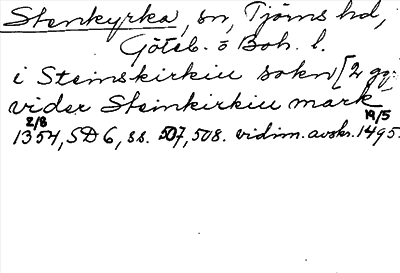 Stenkyrka, sn, Tjörns hd,
Göteb. o Boh. l.
i Steinskirkiu sokn [2 gg.
vider Steinkirkiu mark
2/8 19/5
1354, SD 6, ss. 507, 508. vidim. avskr. 1495.